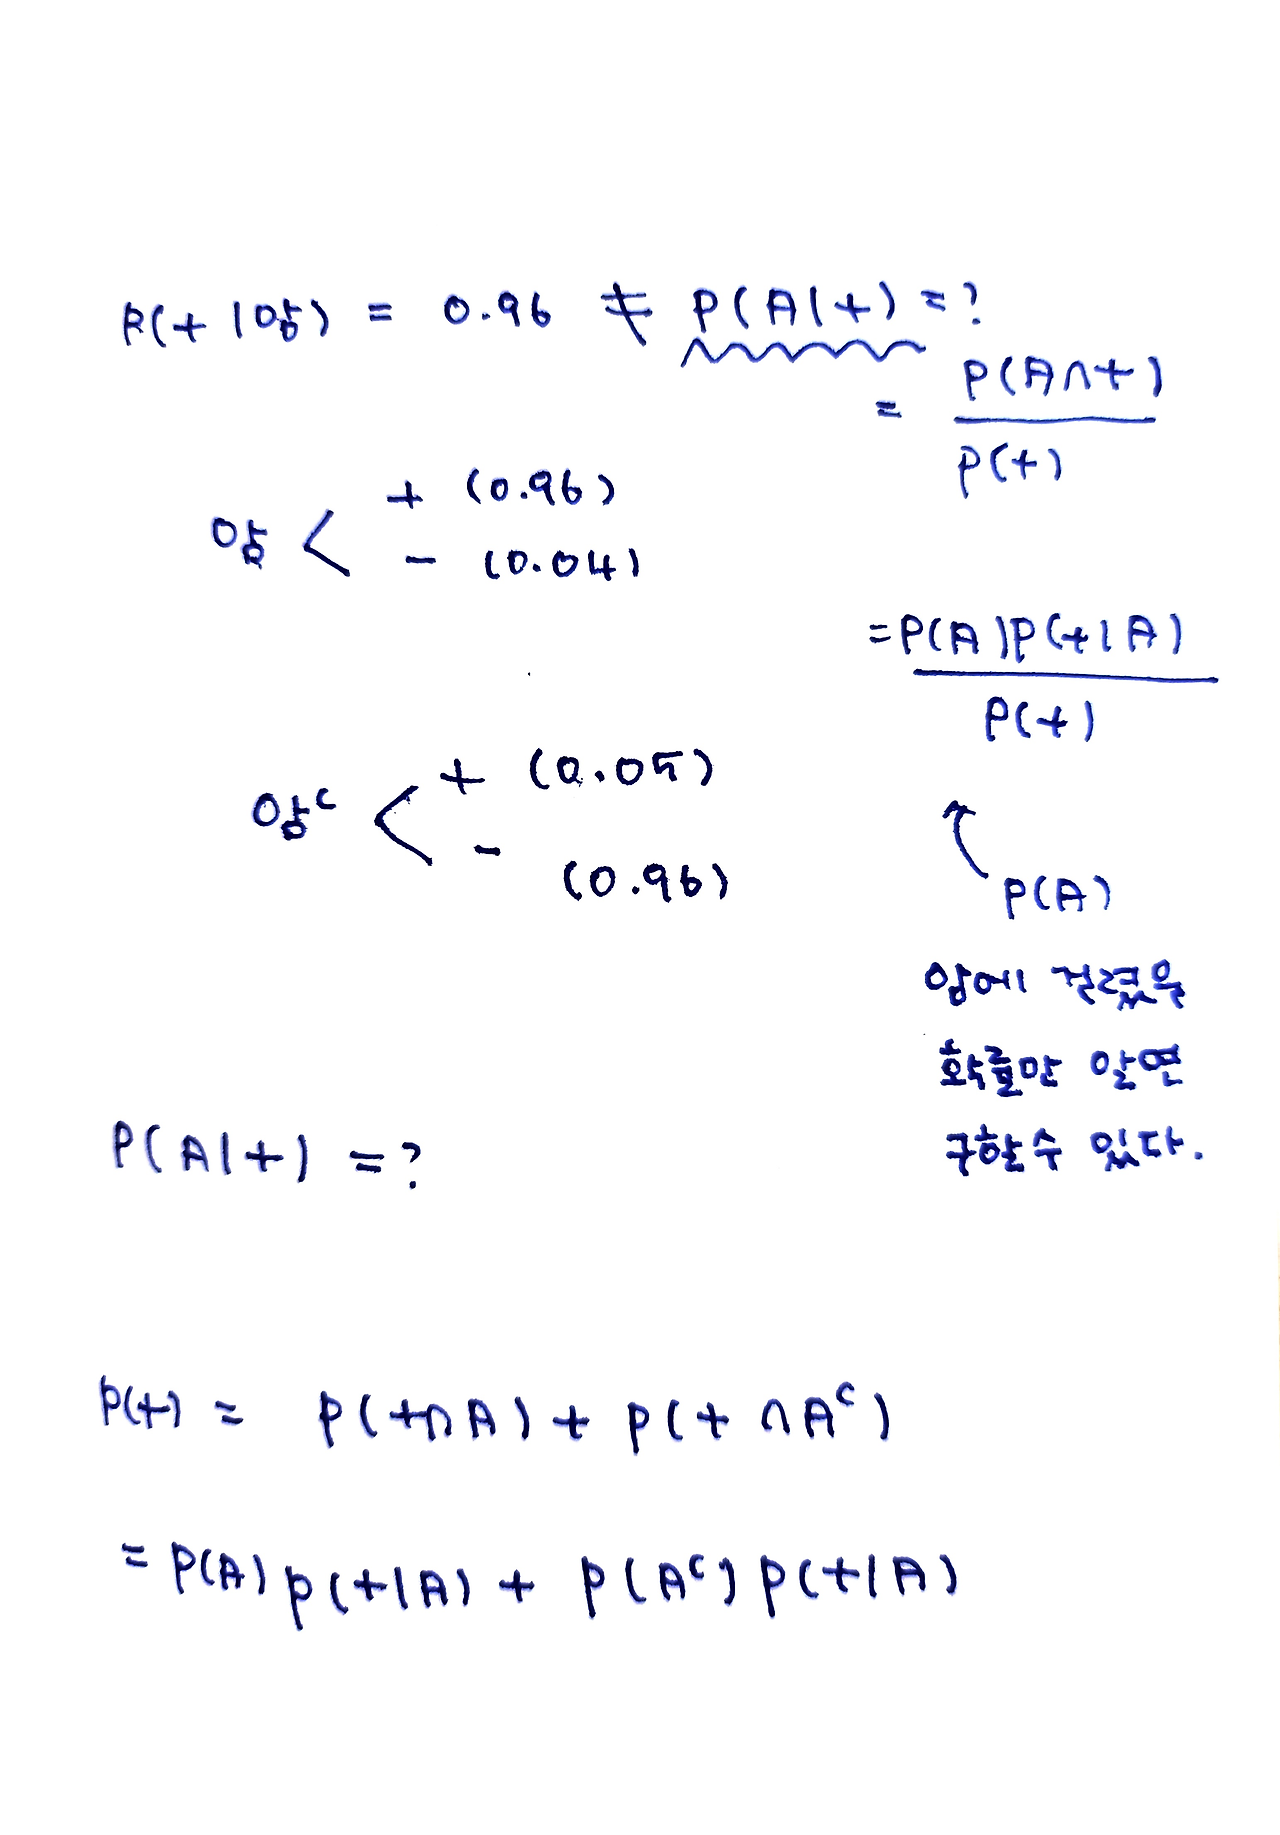 P(+|암) = 0.96 ≠ P(A|+) = ?
= P(A∩+)
P(+)
암 < + (0.96)
- (0.04)
= P(A)P(+|A)
P(+)
암ᶜ < + (0.05)
- (0.96)
P(A)
암에 걸렸을
확률만 알면
구할수 있다.
P(A|+) = ?
P(+) = P(+∩A) + P(+∩Aᶜ)
= P(A)P(+|A) + P(Aᶜ)P(+|A)